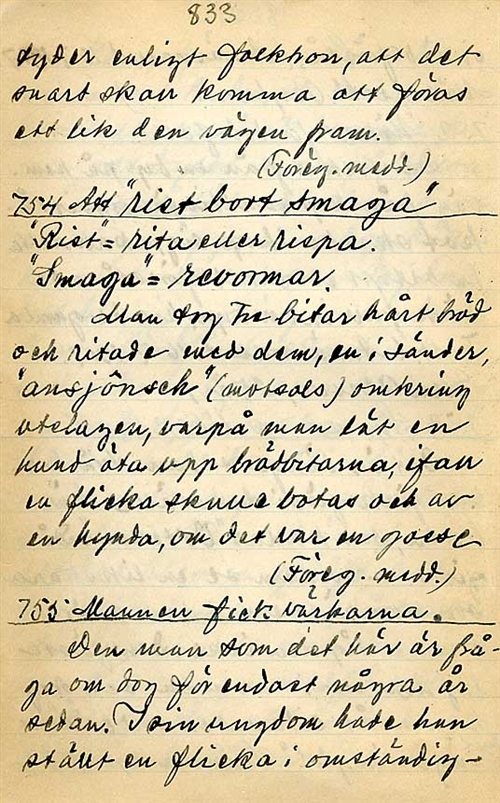 833
tyder enligt folktron, att det
snart skall komma att föras
ett lik den vägen fram.
(Föreg. medd.)
754 Att "rist bort smaga"
"Rist" = rita eller rispa.
"Smaga" = revormar.
Man tog tre bitar hårt bröd
och ritade med dem, en i sänder,
"ansjönsch" (motsols) omkring
utslagen, varpå man lät en
hund äta upp brödbitarna, ifall
en flicka skulle botas och av
en hynda, om det var en gosse
(Föreg. medd.)
755 Mannen fick värkarna.
Den man som det här är frå-
ga om dog för endast några år
sedan. I sin ungdom hade han
ställt en flicka i omständig-